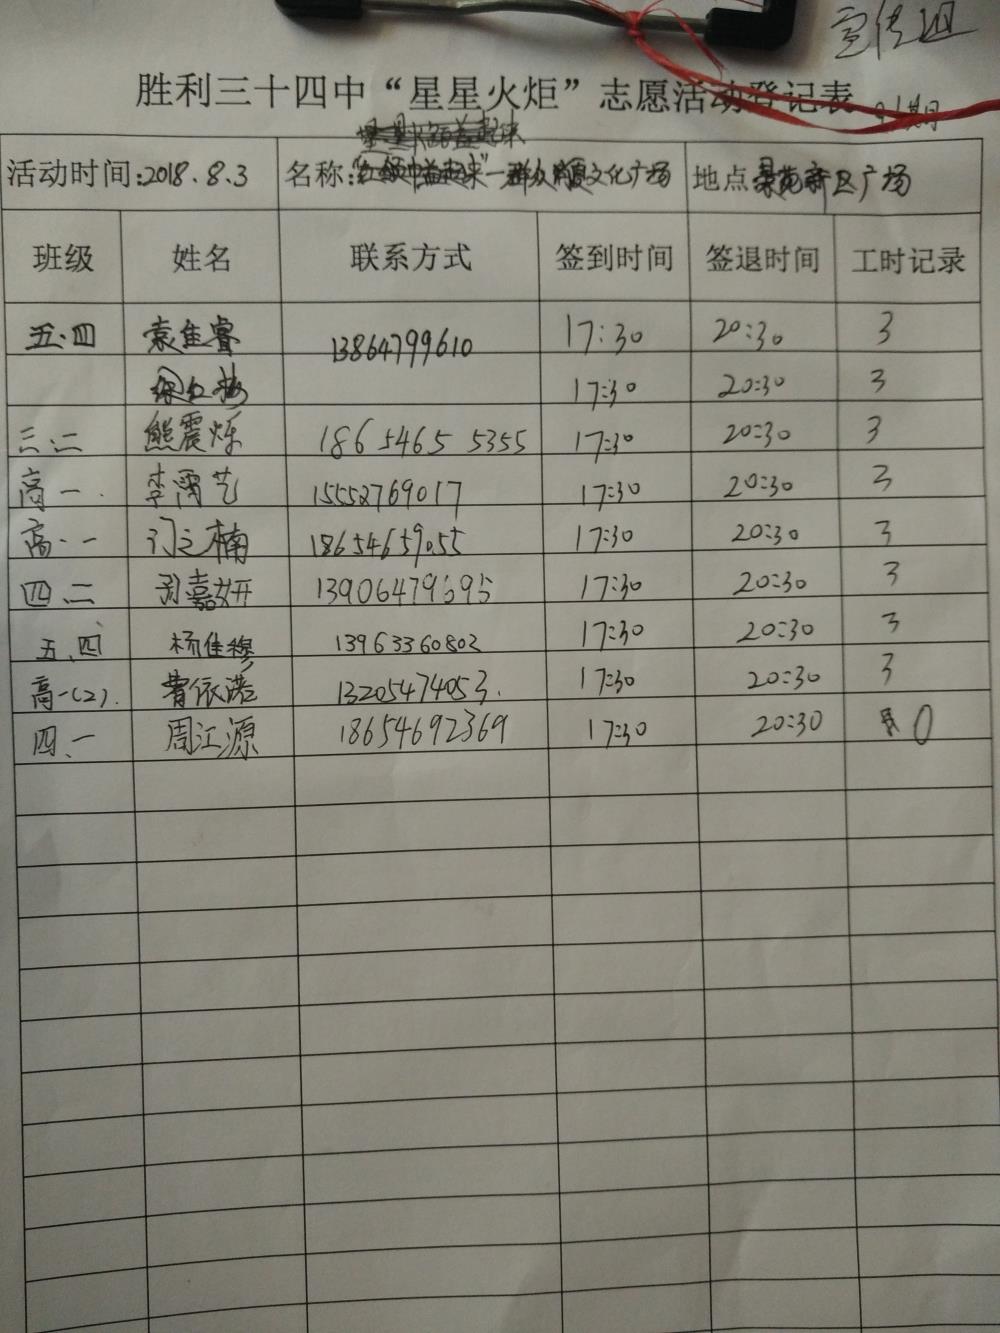 宣传组
胜利三十四中“星星火炬”志愿活动登记表
91期
活动时间:2018.8.3 名称:“红领巾益起来”—群众 文化广场 地点 景苑新区广场
班级 姓名 联系方式 签到时间 签退时间 工时记录
五.四 袁佳睿 13864799610 17:30 20:30 3
17:30 20:30 3
三.二 熊震烁 18654655355 17:30 20:30 3
高一. 李霈艺 15552769017 17:30 20:30 3
高.一 门之楠 18654659055 17:30 20:30 3
四.二 嘉妍 13906479695 17:30 20:30 3
五.四 杨佳穆 13963360802 17:30 20:30 3
高一(2). 曹依诺 13205474053. 17:30 20:30 3
四.一 周江源 18654692369 17:30 20:30 0